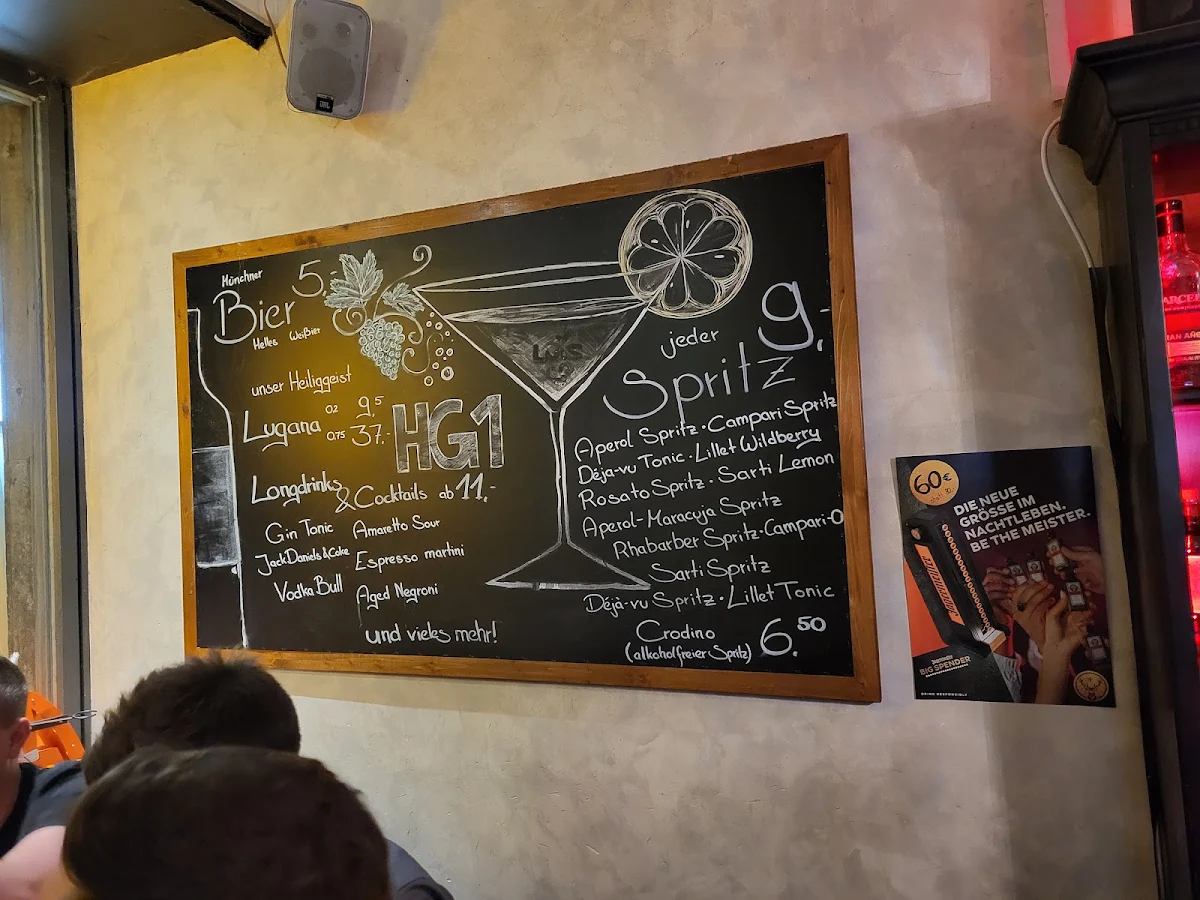 JBL
Münchner
Bier 5.-
Helles Weißbier
unser Heiliggeist
Lugana 0.2 9.5
0.75 37.-
HG1
Longdrinks
& Cocktails ab 11.-
Gin Tonic Amaretto Sour
Jack Daniels & Coke Espresso martini
Vodka Bull Aged Negroni
und vieles mehr!
jeder 9,-
Spritz
Aperol Spritz · Campari Spritz
Déja-vu Tonic · Lillet Wildberry
Rosato Spritz · Sarti Lemon
Aperol-Maracuja Spritz
Rhabarber Spritz · Campari-O
Sarti Spritz
Déjà-vu Spritz · Lillet Tonic
Crodino
(alkoholfreier Spritz) 6.50
60€
DIE NEUE
GRÖSSE IM
NACHTLEBEN.
BE THE MEISTER.
Jägermeister
BIG SPENDER
DRINK RESPONSIBLY